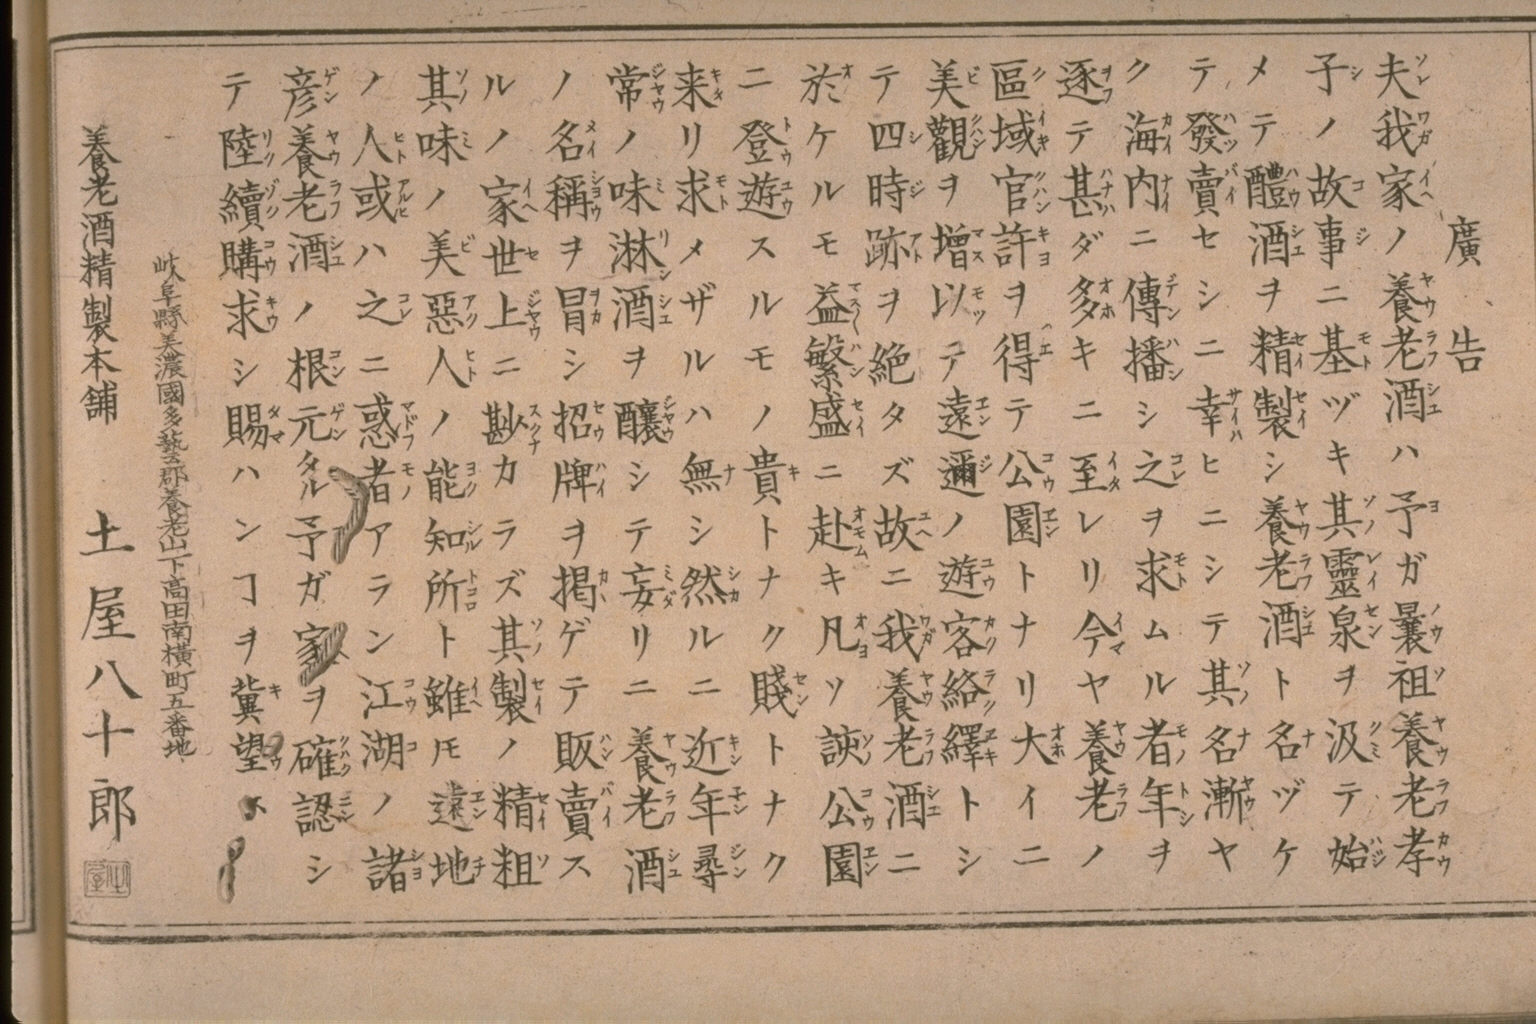 廣告
夫我家ノ養老酒ハ予ガ曩祖養老孝
子ノ故事ニ基ヅキ其靈泉ヲ汲テ始
メテ醴酒ヲ精製シ養老酒ト名ヅケ
テ發賣セシニ幸ヒニシテ其名漸ヤ
ク海内ニ傳播シ之ヲ求ムル者年ヲ
逐テ甚ダ多キニ至レリ今ヤ養老ノ
區域官許ヲ得テ公園トナリ大イニ
美觀ヲ增以テ遠邇ノ遊客絡繹トシ
テ四時跡ヲ絶タズ故ニ我養老酒ニ
於ケルモ益繁盛ニ赴キ凡ソ該公園
ニ登遊スルモノ貴トナク賤トナク
来リ求メザルハ無シ然ルニ近年尋
常ノ味淋酒ヲ釀シテ妄リニ養老酒
ノ名稱ヲ冒シ招牌ヲ掲ゲテ販賣ス
ルノ家世上ニ尠カラズ其製ノ精粗
其味ノ美惡人ノ能知所ト雖モ遠地
ノ人或ハ之ニ惑者アラン江湖ノ諸
彦養老酒ノ根元タル予ガ家ヲ確認シ
テ陸續購求シ賜ハンヿヲ冀望ス
岐阜縣美濃國多藝郡養老山下高田南横町五番地
養老酒精製本舗 土屋八十郎